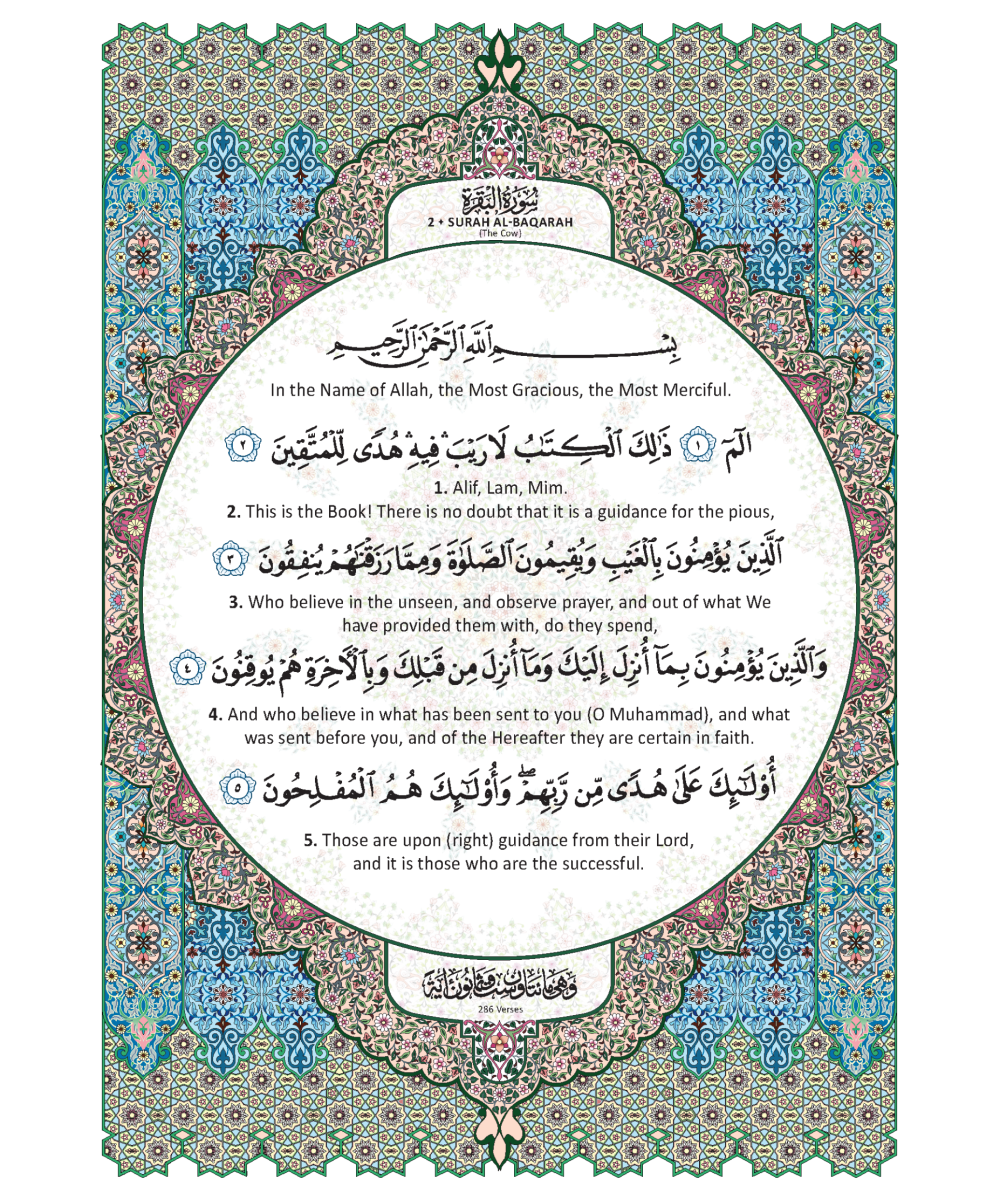 سُورَةُ الْبَقَرَةِ
2 • SURAH AL-BAQARAH
(The Cow)
بِسْمِ اللَّهِ الرَّحْمَٰنِ الرَّحِيمِ
In the Name of Allah, the Most Gracious, the Most Merciful.
الٓمٓ ١ ذَٰلِكَ ٱلْكِتَٰبُ لَا رَيْبَ ۛ فِيهِ ۛ هُدًى لِّلْمُتَّقِينَ ٢
1. Alif, Lam, Mim.
2. This is the Book! There is no doubt that it is a guidance for the pious,
ٱلَّذِينَ يُؤْمِنُونَ بِٱلْغَيْبِ وَيُقِيمُونَ ٱلصَّلَوٰةَ وَمِمَّا رَزَقْنَٰهُمْ يُنفِقُونَ ٣
3. Who believe in the unseen, and observe prayer, and out of what We
have provided them with, do they spend,
وَٱلَّذِينَ يُؤْمِنُونَ بِمَآ أُنزِلَ إِلَيْكَ وَمَآ أُنزِلَ مِن قَبْلِكَ وَبِٱلْأَخِرَةِ هُمْ يُوقِنُونَ ٤
4. And who believe in what has been sent to you (O Muhammad), and what
was sent before you, and of the Hereafter they are certain in faith.
أُو۟لَٰٓئِكَ عَلَىٰ هُدًى مِّن رَّبِّهِمْ ۖ وَأُو۟لَٰٓئِكَ هُمُ ٱلْمُفْلِحُونَ ٥
5. Those are upon (right) guidance from their Lord,
and it is those who are the successful.
وَهِيَ مِائَتَانِ وَسِتٌّ وَثَمَانُونَ آيَةً
286 Verses